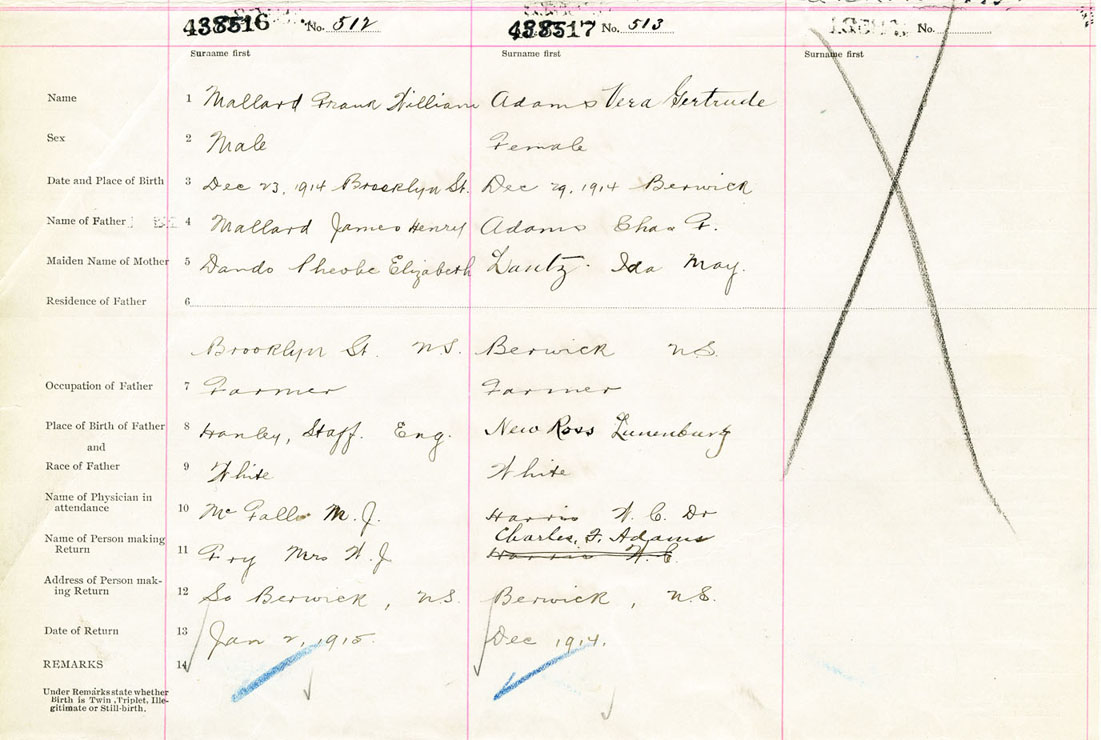 438516 No. 512 438517 No. 513 No.
Surname first Surname first Surname first
Name 1 Mallard Frank William Adams Vera Gertrude
Sex 2 Male Female
Date and Place of Birth 3 Dec 23, 1914 Brooklyn St. Dec 29, 1914 Berwick
Name of Father 4 Mallard James Henry Adams Chas F.
Maiden Name of Mother 5 Dando Pheobe Elizabeth Lantz Ida May.
Residence of Father 6
Brooklyn St. N.S. Berwick N.S.
Occupation of Father 7 Farmer Farmer
Place of Birth of Father 8 Hanley, Staff. Eng. New Ross Lunenburg
and
Race of Father 9 White White
Name of Physician in
attendance 10 M. J. Harris W. C. Dr
Name of Person making Charles. F. Adams
Return 11 Fry Mrs W. J Harris W. C.
Address of Person mak-
ing Return 12 So Berwick, N.S. Berwick, N.S.
Date of Return 13 Jan 2, 1915. Dec 1914.
REMARKS 14
Under Remarks state whether
Birth is Twin, Triplet, Ille-
gitimate or Still-birth.